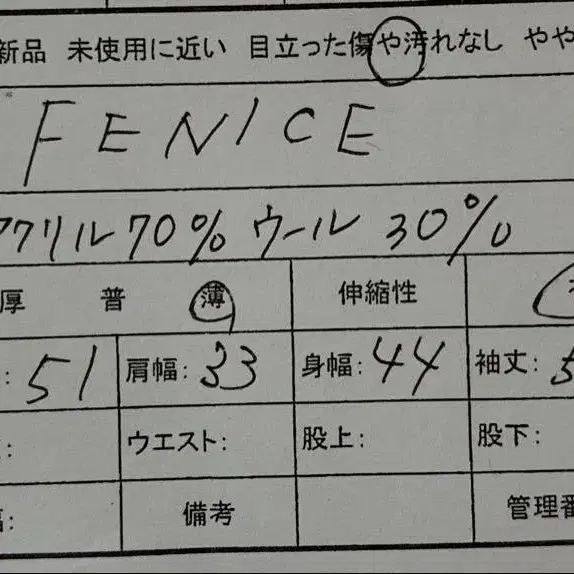 新品 未使用に近い 目立った傷や汚れなし やや
FENICE
アクリル70% ウール 30%
厚 普 薄 伸縮性
: 51 肩幅: 33 身幅: 44 袖丈: 5
: ウエスト: 股上: 股下:
: 備考 管理番